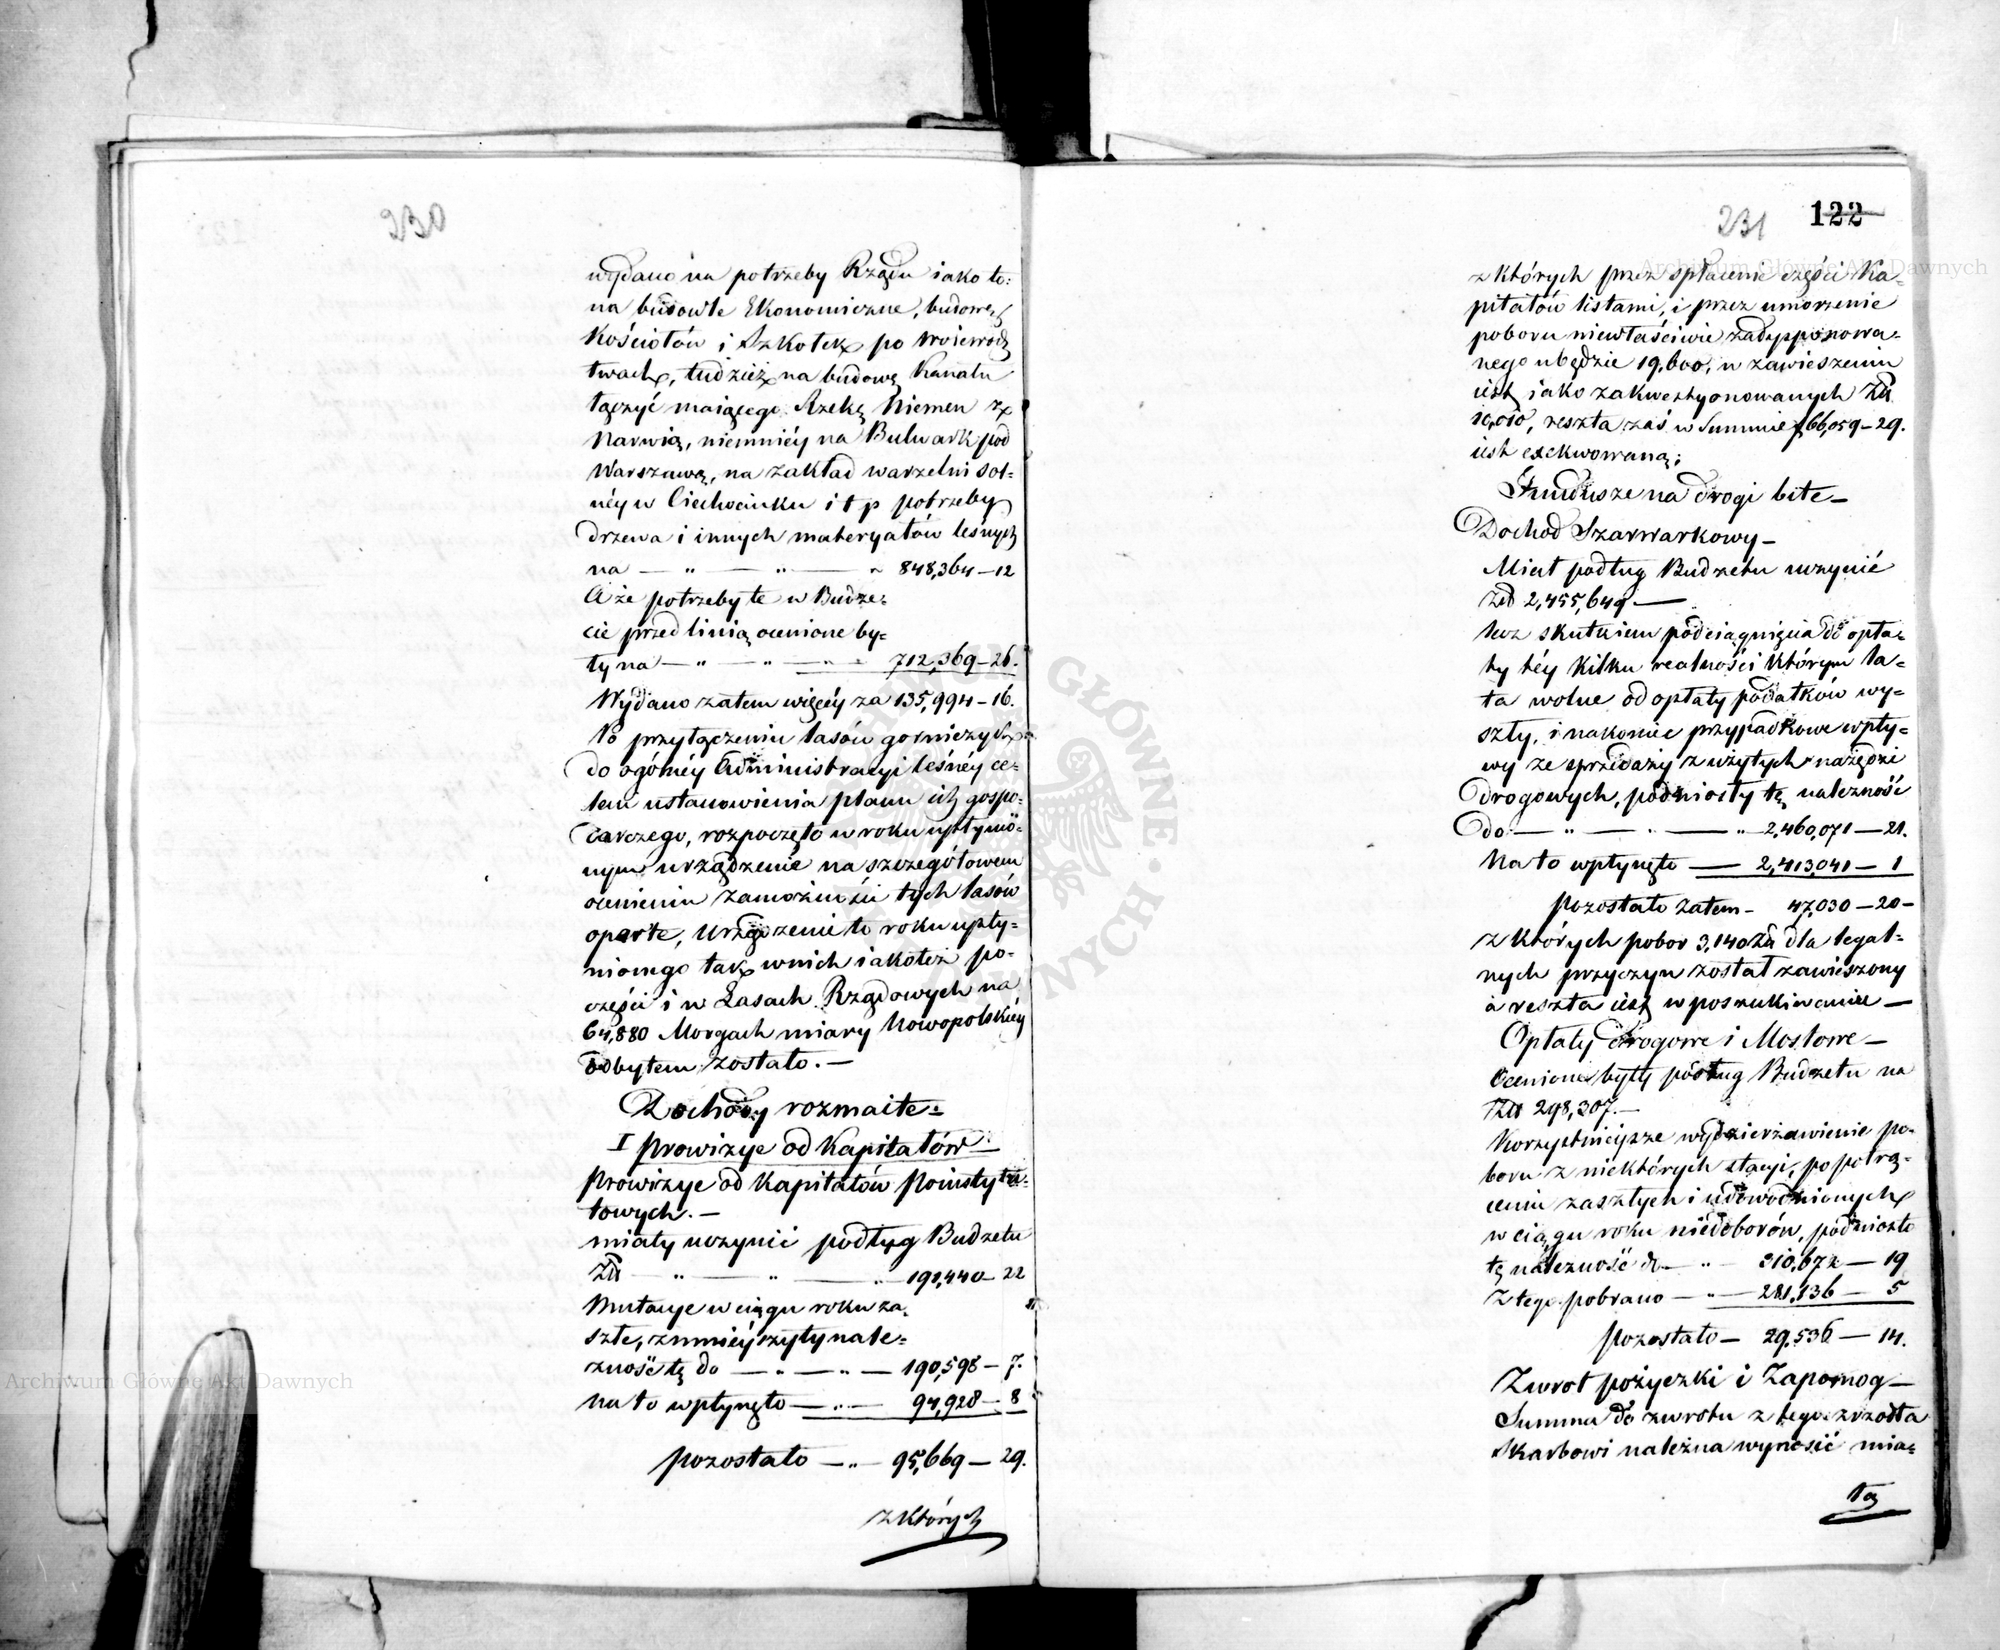 230
wydano na potrzeby Rządu iako to:
na budowle Ekonomiczne, budowę
Kościołów i Szkołek po Woiewodz
twach, tudzież na budowę Kanału
łączyć maiącego Rzekę Niemen z
Narwią, niemniéy na Bulwark pod
Warszawą, na zakład warzelni sol=
néy w Ciechocinku i t p potrzeby
drzewa i innych materyałów leśnych
na — „ — „ — „ 848,364—12
A że potrzeby te w Budże=
cie przed linią ocenione by=
ły na — „ — „ — „ — 712,369—26.
Wydano zatem więcéy za 135,994—16.
Po przyłączeniu lasów gorniczych
do ogólnéy Administracyi leśnéy ce=
lem ustanowienia planu ich gospo=
darczego, rozpoczęto w roku upłynio=
nym urządzenie na szczegółowem
ocenieniu zamożności tych lasów
oparte, Urządzenie to roku upły=
nionego tak w nich iakoteż po=
części i w Lasach Rządowych na
64,880 Morgach miary Nowopolskiéy
odbytem zostało.—
Dochody rozmaite=
I Prowizye od Kapitałów—
Prowizye od Kapitałów Poinstytu=
towych.—
miały uczynić podług Budżetu
Złł — „ — „ — „ 191,440—22
Mutacye w ciągu roku za=
szłe, zmnieyszyły nale=
żność tę do — „ — „ — 190,598—7.
na to wpłynęło — „ — 94,928—8
pozostało — „ — 95,669—29.
z których
231 122
z których przez spłacenie części Ka=
pitałów listami, i przez umorzenie
poboru niewłaściwie zadysponowa=
nego ubędzie 19,600, w zawieszeniu
iest iako zakwestyonowanych Złł
10,010, reszta zaś w Summie f 66,059—29.
iest exekwowaną;
Fundusze na drogi bite—
Dochod Szarwarkowy—
Miał podług Budżetu uczynić
Złł 2,455,649—
lecz skutkiem podciągnięcia do opła=
ty téy kilku realności którym la=
ta wolne od opłaty podatków wy=
szły, i nakoniec przypadkowe wpły=
wy ze sprzedaży zużytych narzędzi
drogowych, podniosły tę należność
do — „ — „ — „ 2,460,071—21.
Na to wpłynęło — 2,413,041—1
pozostało zatem— 47,030—20—
z których pobor 3,140 Złł dla legal=
nych przyczyn został zawieszony
a reszta iest w poszukiwaniu—
Opłaty drogowe i Mostowe—
Ocenione były podług Budżetu na
Złł 298,307.—
Korzystnieysze wydzierżawienie po=
boru z niektórych stacyi, po potrą=
ceniu zaszłych i udowodnionych
w ciągu roku niedoborów, podniosło
tę należność do — „ — 310,672—19
Z tego pobrano — „ — 281,136—5
pozostało— 29,536—14.
Zwrot pożyczki i Zapomog—
Summa do zwrotu z tego zrzodła
Skarbowi należna wynosić mia=
ła
Archiwum Główne Akt Dawnych
Archiwum Główne Akt Dawnych